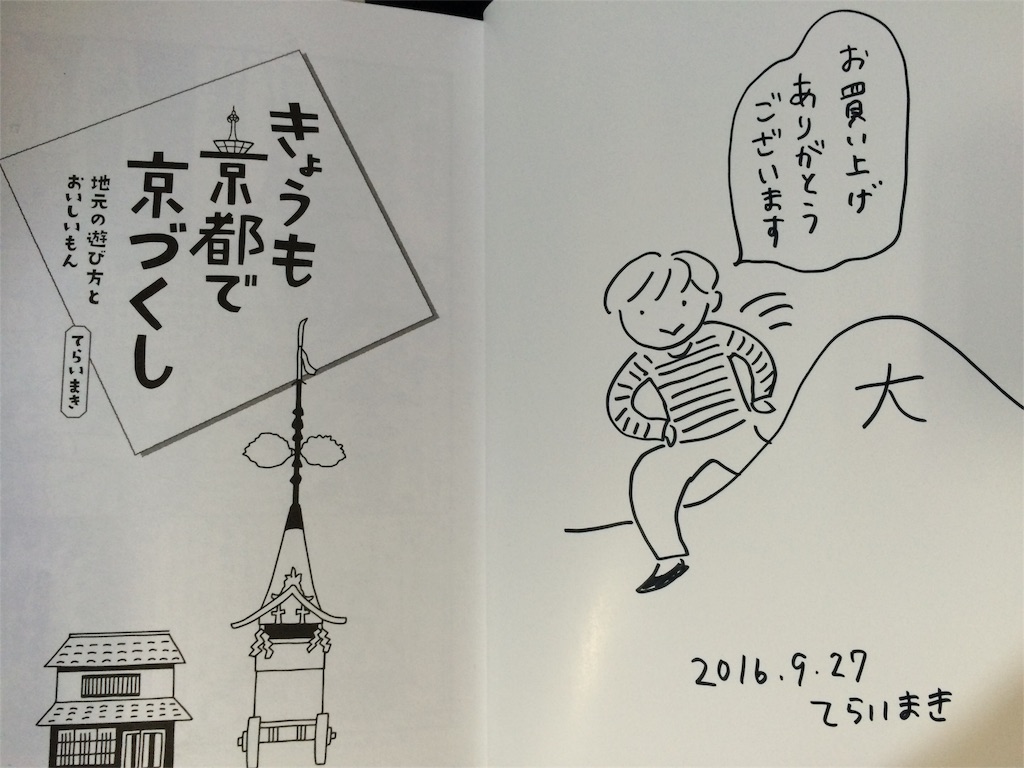 きょうも
京都で
京づくし
地元の遊び方と
おいしいもん
てらいまき
お買い上げ
ありがとう
ございます
大
2016.9.27
てらいまき